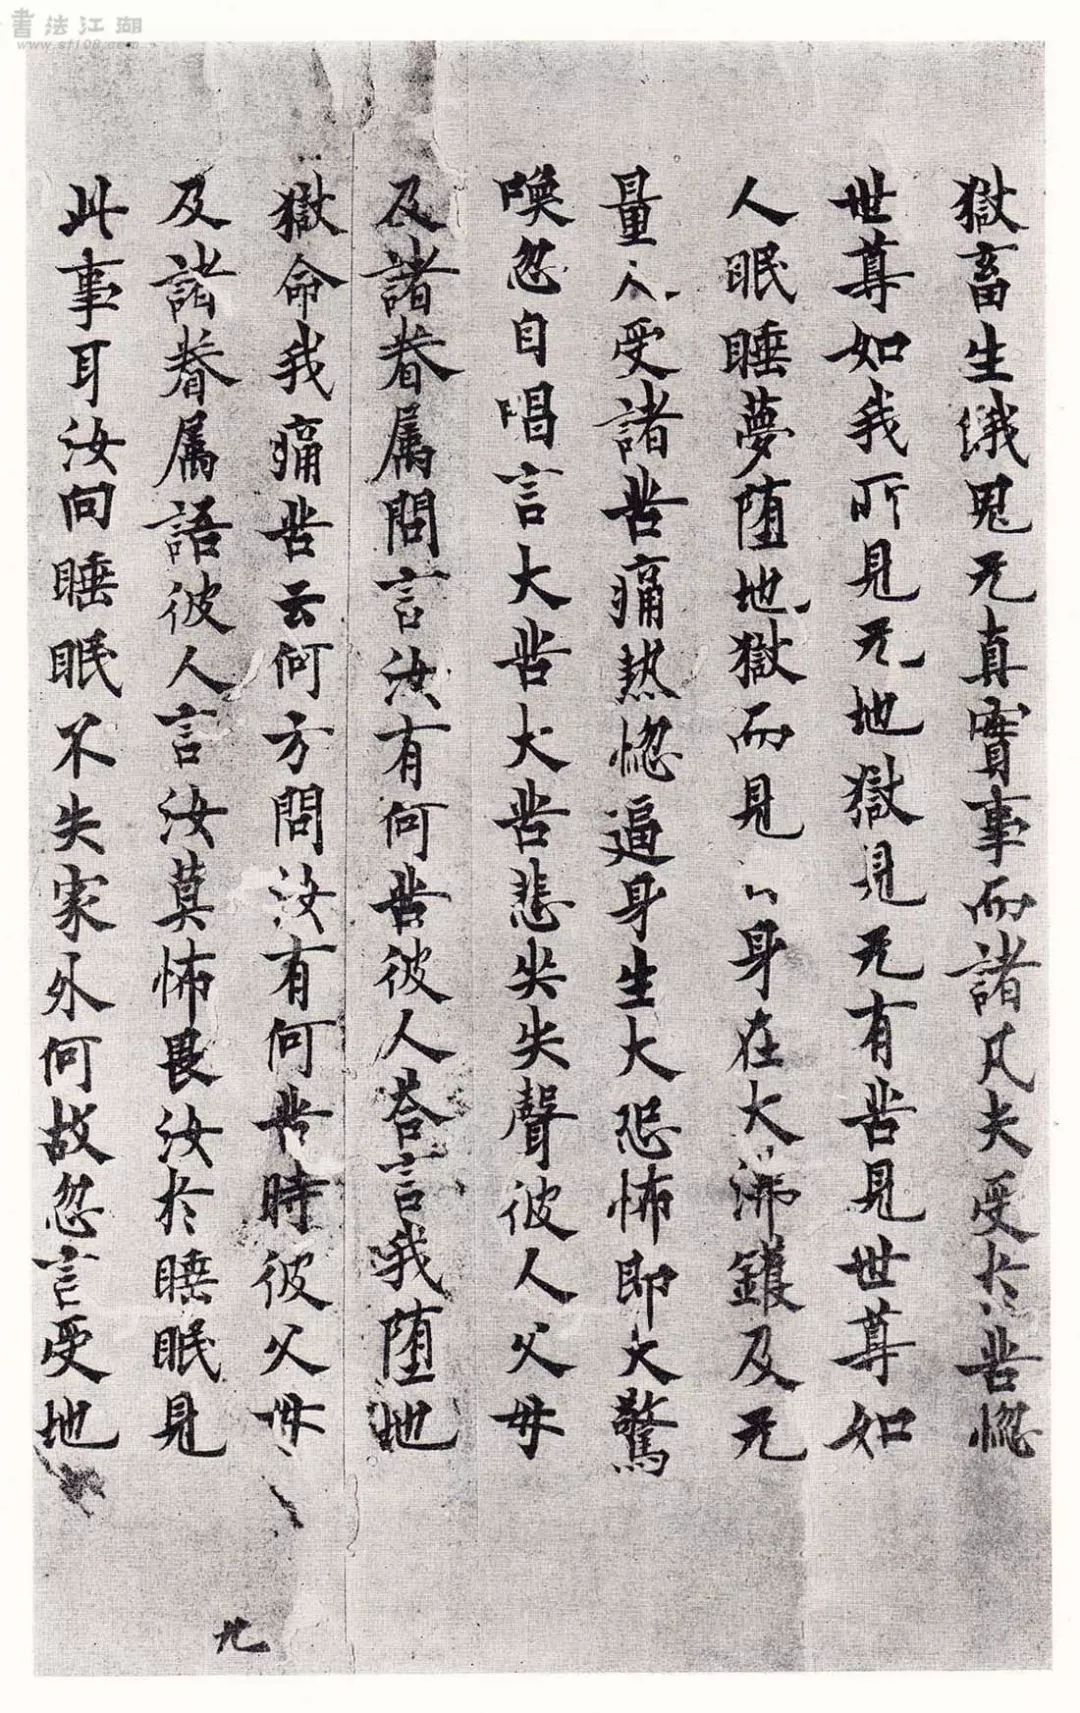 書法江湖
獄畜生餓鬼无真實事而諸凡夫受於苦惚
世尊如我所見无地獄見无有苦見世尊如
人眠睡夢堕地獄而見〻身在大沸鑊及无
量人受諸苦痛热惚逼身生大恐怖即大驚
喚忽自唱言大苦大苦悲哭失聲彼人父母
及諸眷属問言汝有何苦彼人荅言我堕地
獄命我痛苦云何方問汝有何苦時彼父母
及諸眷属語彼人言汝莫怖畏汝於睡眠見
此事耳汝向睡眠不失家外何故忽言受地